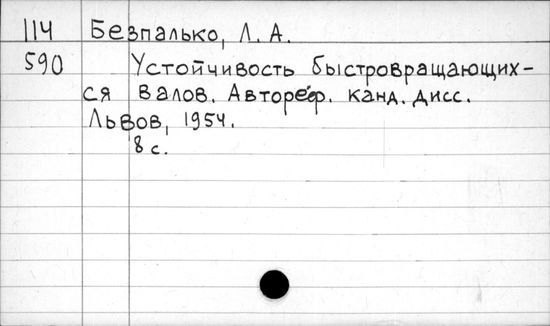 114 Безпалько, Л. А.
590 Устойчивость быстровращающих-
ся валов. Автореф. канд. дисс.
Львов, 1954.
8 с.